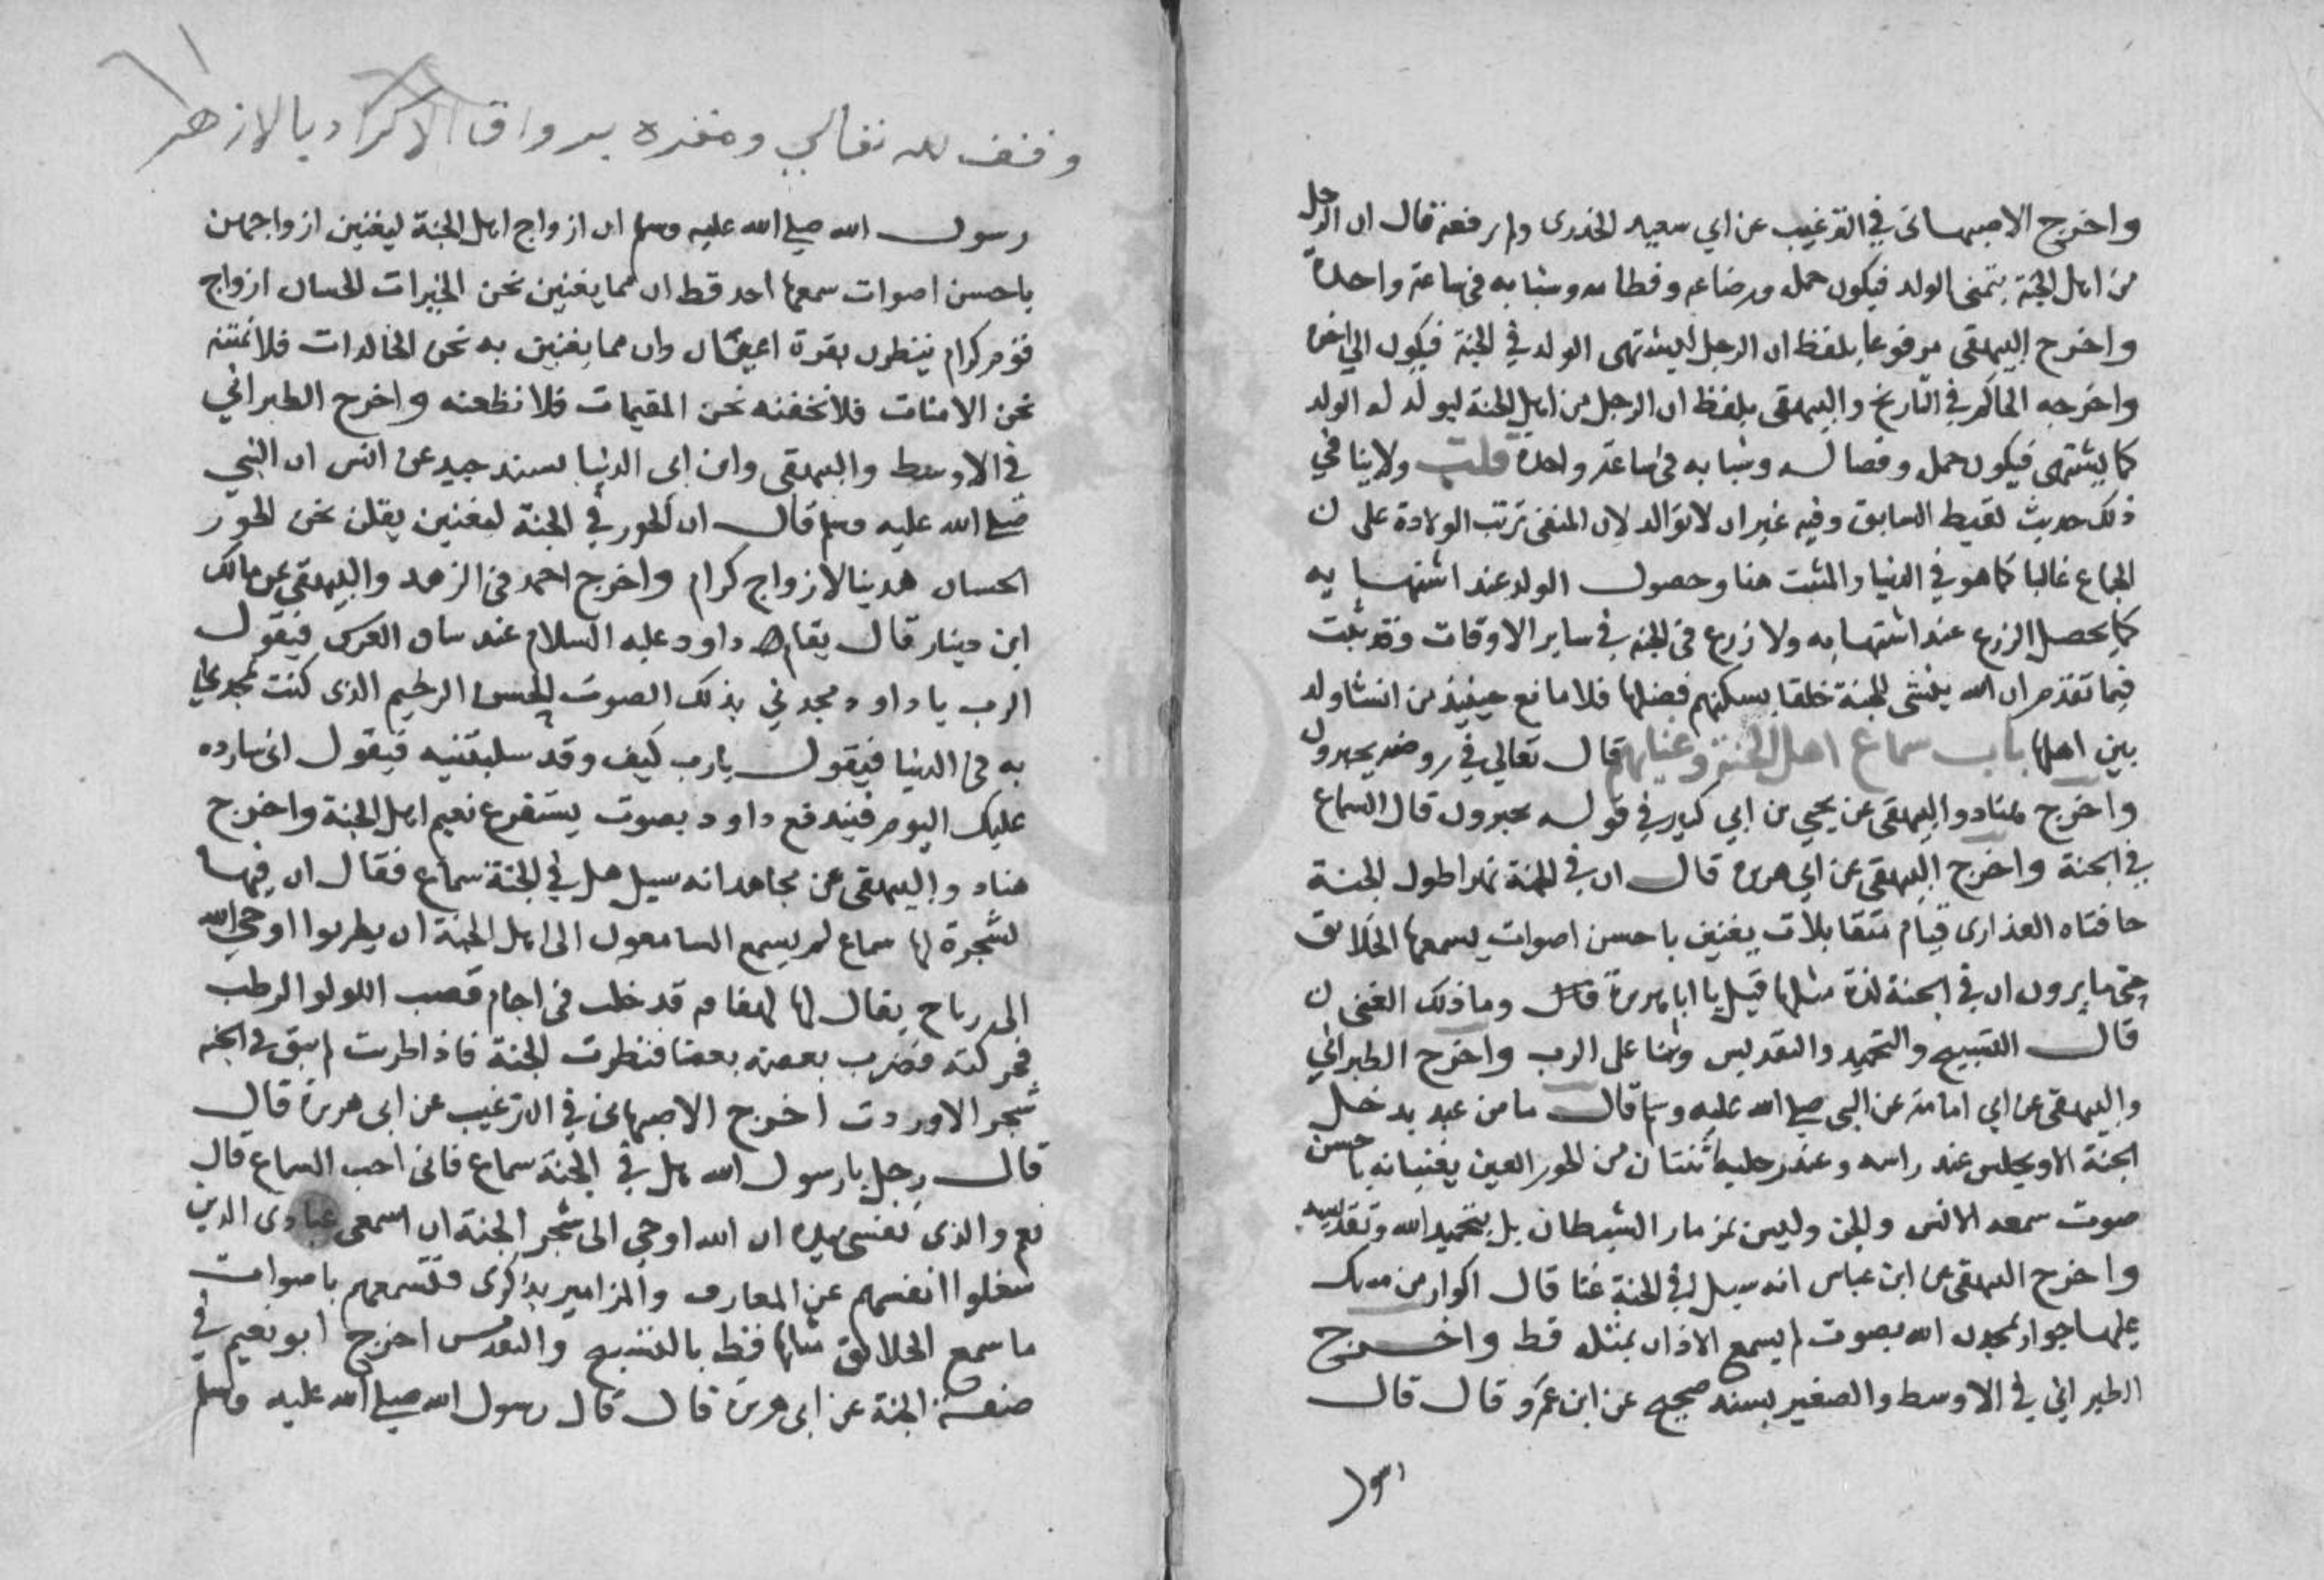 واخرج الاصبهانى في الترغيب عن ابي سعيد الخدرى ولم يرفعه قال ان الرجل
من اهل الجنة يتمنى الولد فيكون حمله ورضاعه وفطامه وشبابه في ساعة واحدة
واخرج البيهقى مرفوعا بلفظ ان الرجل ليشتهى الولد في الجنة فيكون الي اخره
واخرجه الحاكم في التاريخ والبيهقى بلفظ ان الرجل من اهل الجنة ليولد له الولد
كما يشتهى فيكون حمله وفصاله وشبابه في ساعة واحدة قلت ولا ينافي
ذلك حديث لقيط السابق وفيه غير ان لا توالد لان المنفى ترتب الولادة على ن
الجماع غالبا كما هو في الدنيا والمثبت هنا وحصول الولد عند اشتهايه
كما يحصل الزرع عند اشتهايه ولا زرع في الجنة في ساير الاوقات وقد ثبت
فيما تقدم ان الله ينشى للجنة خلقا يسكنهم فضلها فلا مانع حينيذ من انشا ولد
بين اهلها باب سماع اهل الجنة وغنايهم قال تعالي في روضة يحبرون
واخرج هناد والبيهقى عن يحيى بن ابي كثير في قوله يحبرون قال السماع
في الجنة واخرج البيهقى عن ابي هريرة قال ان في الجنة نهرا طول الجنة
حافتاه العذارى قيام متقابلات يغنين باحسن اصوات يسمعها الخلايق
حتى ما يرون ان في الجنة لذة مثلها قيل يا ابا هريرة قال وما ذلك الغنى ن
قال التسبيح والتحميد والتقديس وثنا على الرب واخرج الطبراني
والبيهقى عن ابي امامة عن النبي صلي الله عليه وسلم قال ما من عبد يدخل
الجنة الا ويجلس عند راسه وعند رجليه ثنتان من الحور العين يغنيانه باحسن
صوت سمعه الانس والجن وليس بمزمار الشيطان بل بتحميد الله وتقديسه
واخرج البيهقى عن ابن عباس انه سيل في الجنة غنا قال اكوار من مسك
عليها جوار يمجدن الله بصوت لم يسمع الاذان بمثله قط واخرج
الطبراني في الاوسط والصغير بسند صحيح عن ابن عمر وقال قال
وقف لله تعالي ومقره برواق الاكراد بالازهر
رسول الله صلي الله عليه وسلم ان ازواج اهل الجنة ليغنين ازواجهن
باحسن اصوات سمعها احد قط ان مما يغنين نحن الخيرات الحسان ازواج
قوم كرام ينظرن بقرة اعيان وان مما يغنين به نحن الخالدات فلا نمتنه
نحن الامنات فلا نخفنه نحن المقيمات فلا نظعنه واخرج الطبراني
في الاوسط والبيهقى وابن ابي الدنيا بسند جيد عن انس ان النبي
صلي الله عليه وسلم قال ان الحور في الجنة لمغنين يقلن نحن الحور
الحسان هدينا لازواج كرام واخرج احمد في الزهد والبيهقى عن مالك
ابن دينار قال يقام داود عليه السلام عند ساق العرش فيقول
الرب يا داود مجدني بذلك الصوت الحسن الرخيم الذى كنت تمجدني
به في الدنيا فيقول يا رب كيف وقد سلبتنيه فيقول انى سارده
عليك اليوم فيندفع داود بصوت يستفرغ نعيم اهل الجنة واخرج
هناد والبيهقى عن مجاهد انه سيل هل في الجنة سماع فقال ان فيها
لشجرة لها سماع لم يسمع السامعون الى اهل الجنة ان يطربوا اوحي الله
الى رياح يقال لها لهفافه قد خلت في اجام قصب اللولو الرطب
فحركته فضرب بعضه بعضا فتطرب الجنة فاذا طربت لم يبق في الجنة
شجر الا وردت اخرج الاصبهانى في الترغيب عن ابى هريرة قال
قال رجل يا رسول الله هل في الجنة سماع فانى احب السماع قال
نعم والذى نفسي بيده ان الله اوحي الى شجر الجنة ان اسمعى عبادى الذين
شغلوا انفسهم عن المعازف والمزامير بذكرى فتسمعهم باصوات
ما سمع الخلايق مثلها قط بالتسبيح والتقديس اخرج ابو نعيم في
صفة الجنة عن ابى هريرة قال قال رسول الله صلي الله عليه وسلم